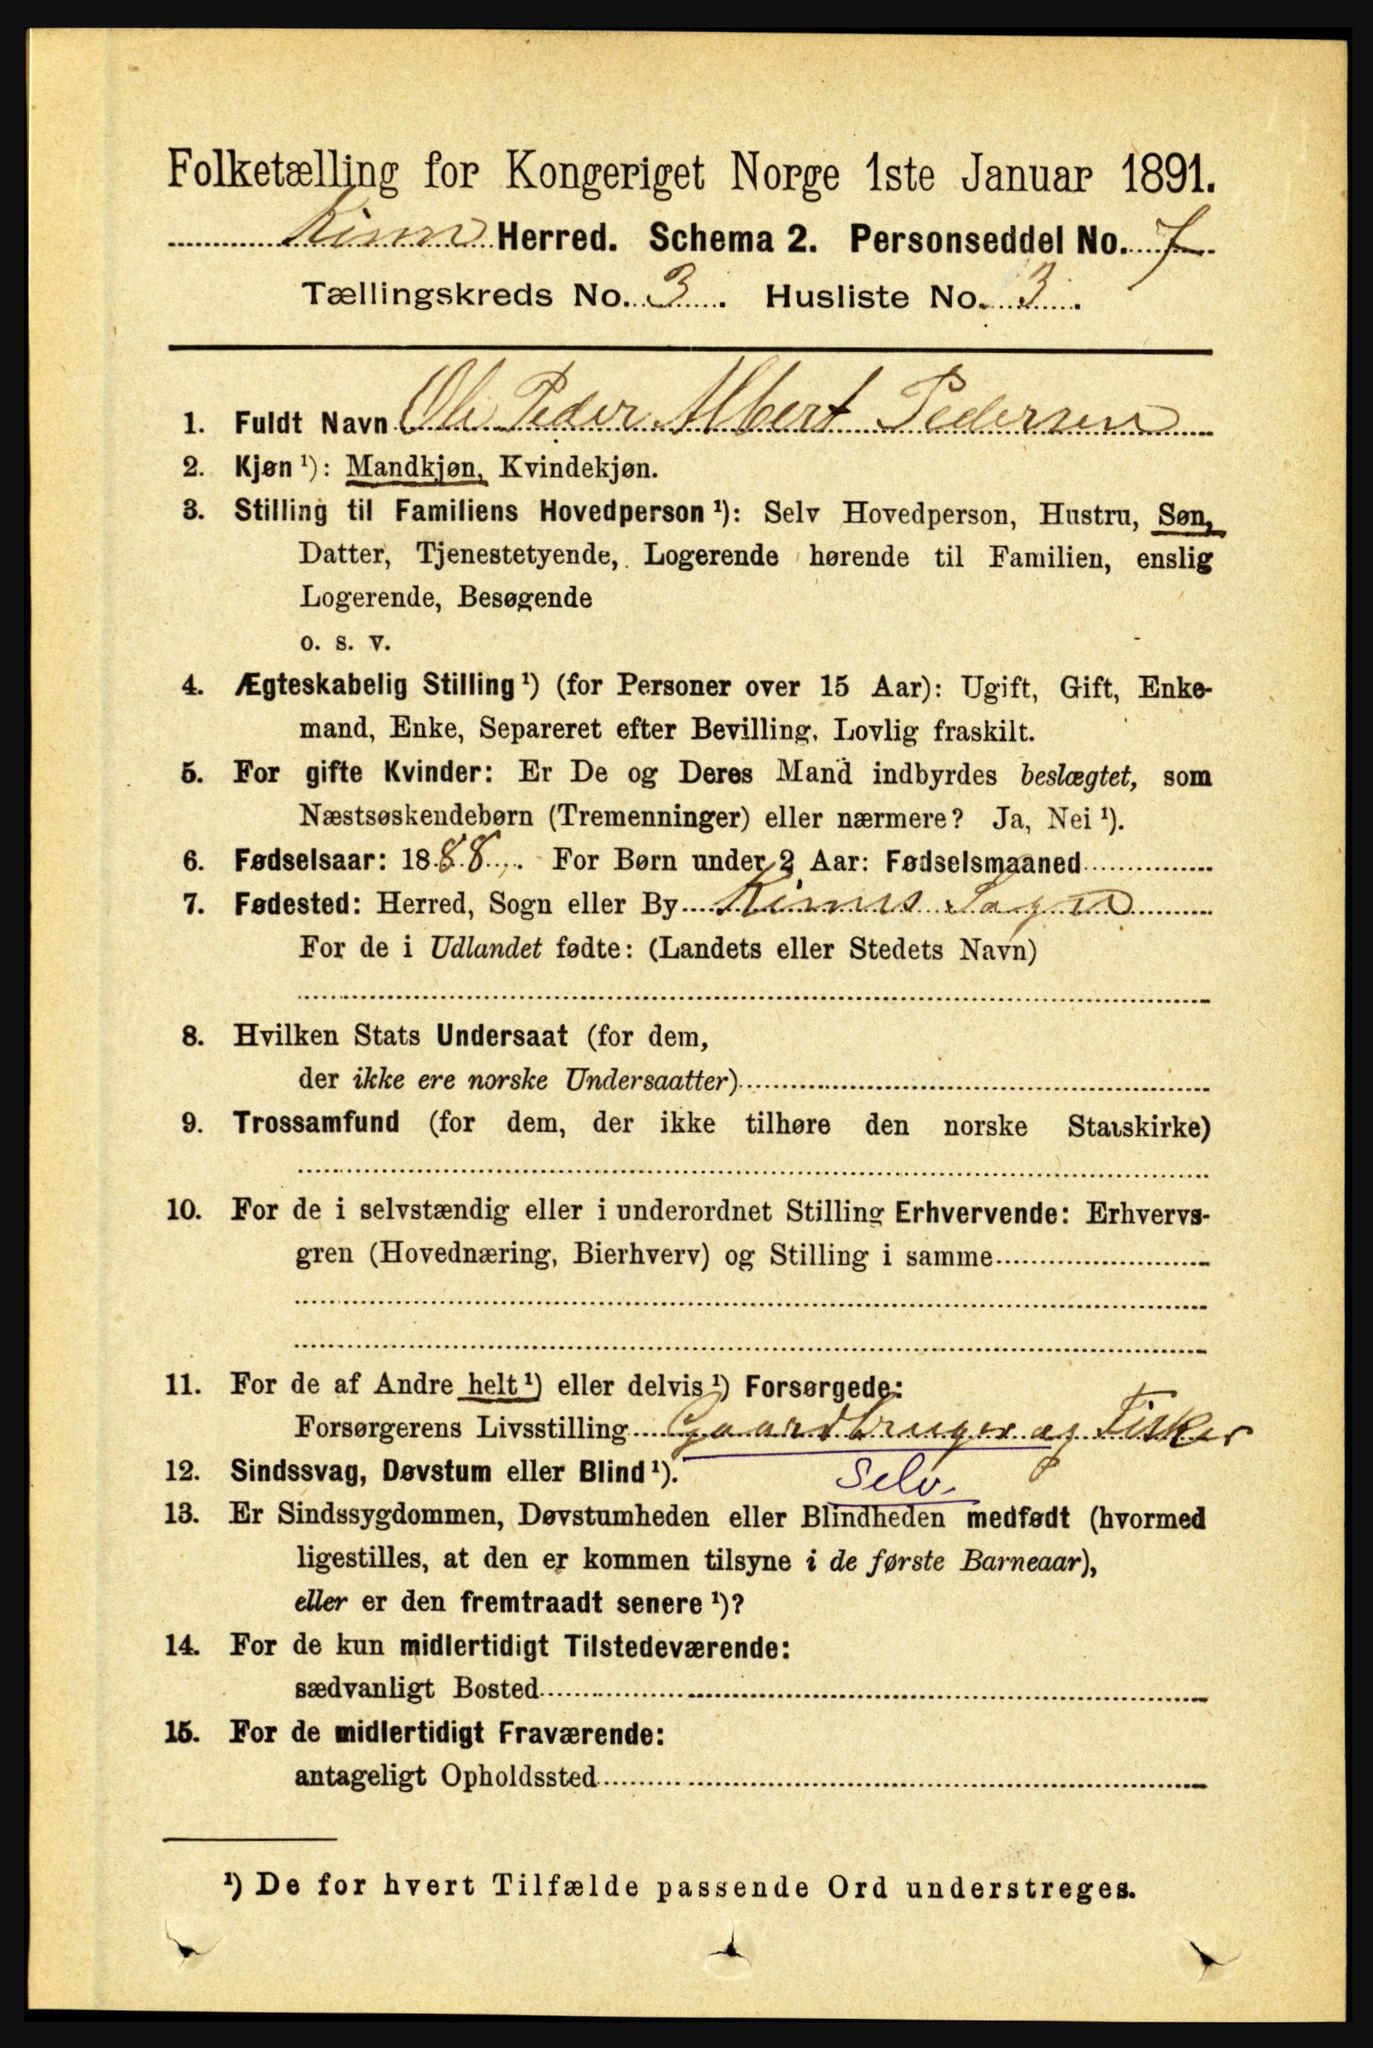 Folketælling for Kongeriget Norge 1ste Januar 1891.
Kinn Herred. Schema 2. Personseddel No. 7
Tællingskreds No. 3. Husliste No. 3.
1. Fuldt Navn Ole Peder Albert Pedersen
2. Kjøn ¹): Mandkjøn, Kvindekjøn.
3. Stilling til Familiens Hovedperson ¹): Selv Hovedperson, Hustru, Søn,
Datter, Tjenestetyende, Logerende hørende til Familien, enslig
Logerende, Besøgende
o. s. v.
4. Ægteskabelig Stilling ¹) (for Personer over 15 Aar): Ugift, Gift, Enke-
mand, Enke, Separeret efter Bevilling, Lovlig fraskilt.
5. For gifte Kvinder: Er De og Deres Mand indbyrdes beslægtet, som
Næstsøskendebørn (Tremenninger) eller nærmere? Ja, Nei ¹).
6. Fødselsaar: 1888. For Børn under 2 Aar: Fødselsmaaned
7. Fødested: Herred, Sogn eller By Kinns Sogn
For de i Udlandet fødte: (Landets eller Stedets Navn)
8. Hvilken Stats Undersaat (for dem,
der ikke ere norske Undersaatter)
9. Trossamfund (for dem, der ikke tilhøre den norske Statskirke)
10. For de i selvstændig eller i underordnet Stilling Erhvervende: Erhvervs-
gren (Hovednæring, Bierhverv) og Stilling i samme
11. For de af Andre helt ¹) eller delvis ¹) Forsørgede:
Forsørgerens Livsstilling Gaardbruger og Fisker
12. Sindssvag, Døvstum eller Blind ¹). Selv.
13. Er Sindssygdommen, Døvstumheden eller Blindheden medfødt (hvormed
ligestilles, at den er kommen tilsyne i de første Barneaar),
eller er den fremtraadt senere ¹)?
14. For de kun midlertidigt Tilstedeværende:
sædvanligt Bosted
15. For de midlertidigt Fraværende:
antageligt Opholdssted
¹) De for hvert Tilfælde passende Ord understreges.